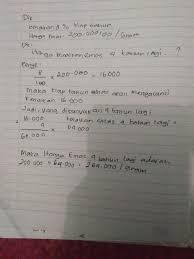 Dik
tiap tahun
200.000,00 / Gram
Dit:
Harga emas 4 tahun lagi ?
8/100 x 200.000 = 16.000
Maka tiap tahun akan mengalami
kenaikan 16.000
Jadi, yang ditanyakan 4 tahun lagi
= 16.000 kenaikan emas 4 tahun lagi =
4 64.000
64.000
Maka Harga Emas 4 tahun lagi adalah
200.000 + 64.000 = 264.000 / gram